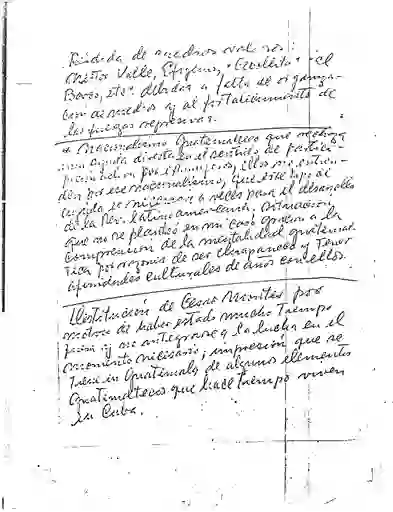 Pérdida de nuestros valores:
Néstor Valle, Efigenio, "Cebollita" el
Bolso, etc. debidas a falta de organiza-
ción de medios y al fortalecimiento de
las fuerzas represivas.
* Nacionalismo Guatemalteco que rechaza
una ayuda directa en el sentido de partici-
pación por extranjeros, ellos no entien-
den por ese nacionalismo, que este tipo de
ayuda es necesaria a veces para el desarrollo
de la Rev. latinoamericana. Situación
que no se planteó en mi caso gracias a la
comprensión de la mentalidad guatemal-
teca por razones de ser chiapaneco y tener
afinidades culturales de años con ellos.
Destitución de Cesar Montes por
motivo de haber estado mucho tiempo
fuera y no integrarse a la lucha en el
momento necesario; impresión que se
tiene en Guatemala de algunos elementos
Guatemaltecos que hace tiempo viven
en Cuba.